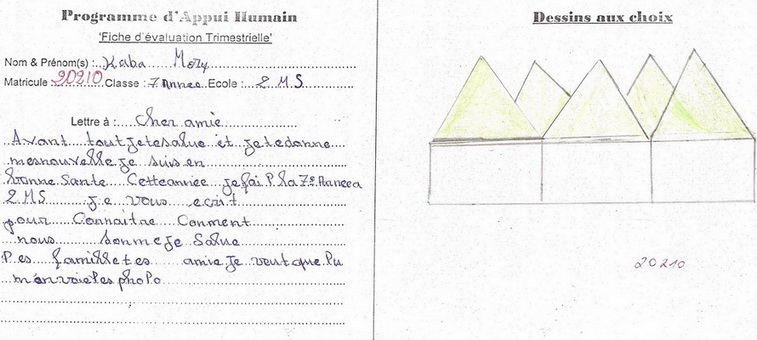 Programme d'Appui Humain
'Fiche d'évaluation Trimestrielle'
Nom & Prénom(s) : Kaba Mory
Matricule : 20210 Classe : 7 Annes Ecole : 2 M S
Lettre à : Cher amie
Avant tout je te salue et je te donne
mes nouvelle je suis en
bonne Sante Cette année je fai P la 7e Annee a
2 MS je vous ecrit
pour Connaitre Comment
nous somme je Salue
Pes famille tes amie je veut que Pu
m'anvoie Pes phoPo
Dessins aux choix
20210